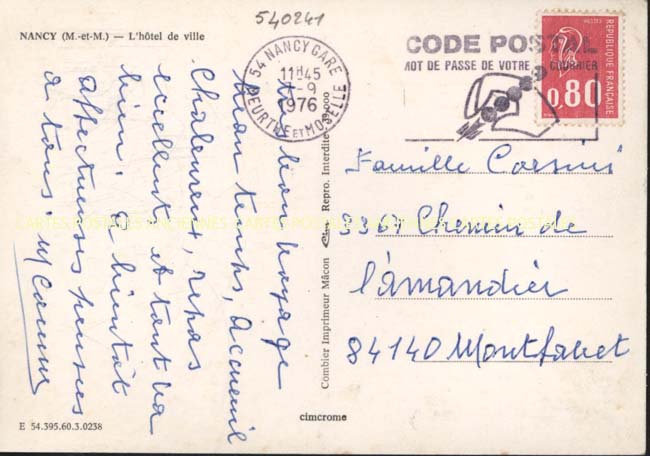 540241
NANCY (M.-et-M.) — L'hôtel de ville
54 NANCY GARE
11H45
-9
1976
MEURTHE ET MOSELLE
CODE POSTAL
MOT DE PASSE DE VOTRE COURRIER
POSTES
REPUBLIQUE FRANÇAISE
0,80
bon voyage
beau temps, accueil
chaleureux, repas
excellent et tout va
bien. A bientôt
affectueuses pensées
à tous.
Combier Imprimeur Mâcon
Repro. Interdite
Famille Corsini
Chemin de
l'amandier
84140 Montfavet
CARTES POSTALES ANCIENNES
cimcrome
E 54.395.60.3.0238